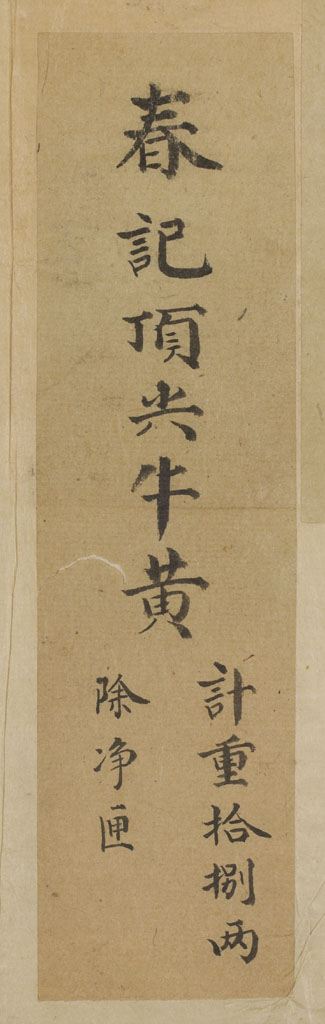 春記頂尖牛黄
計重拾捌两
除净匣